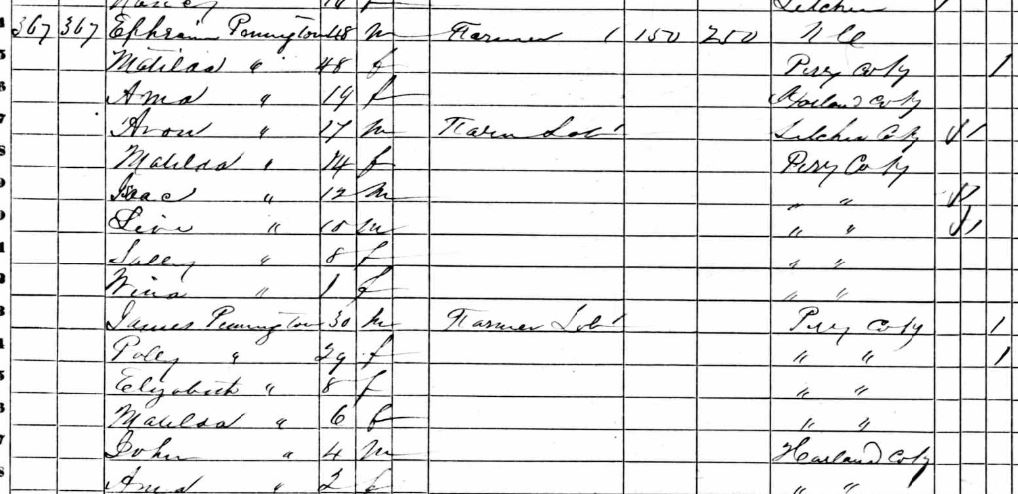 Nancy f Letcher
367 367 Ephraim Pennington 48 m Farmer 150 250 N C
Matilda " 48 f Perry Coty 1
Ama " 19 f Harland Coty
Aron " 17 m Farm Lab Letcher Coty 1
Matilda " 14 f Perry Coty
Isac " 12 m " "
Levi " 10 m " " 1
Salley " 8 f " "
Wina " 1 f " "
James Pennington 30 m Farmer Lab Perry Coty 1
Poley " 29 f " " 1
Elizabeth " 8 f " "
Matilda " 6 f " "
John " 4 m Harland Coty
Ama " 2 f " "